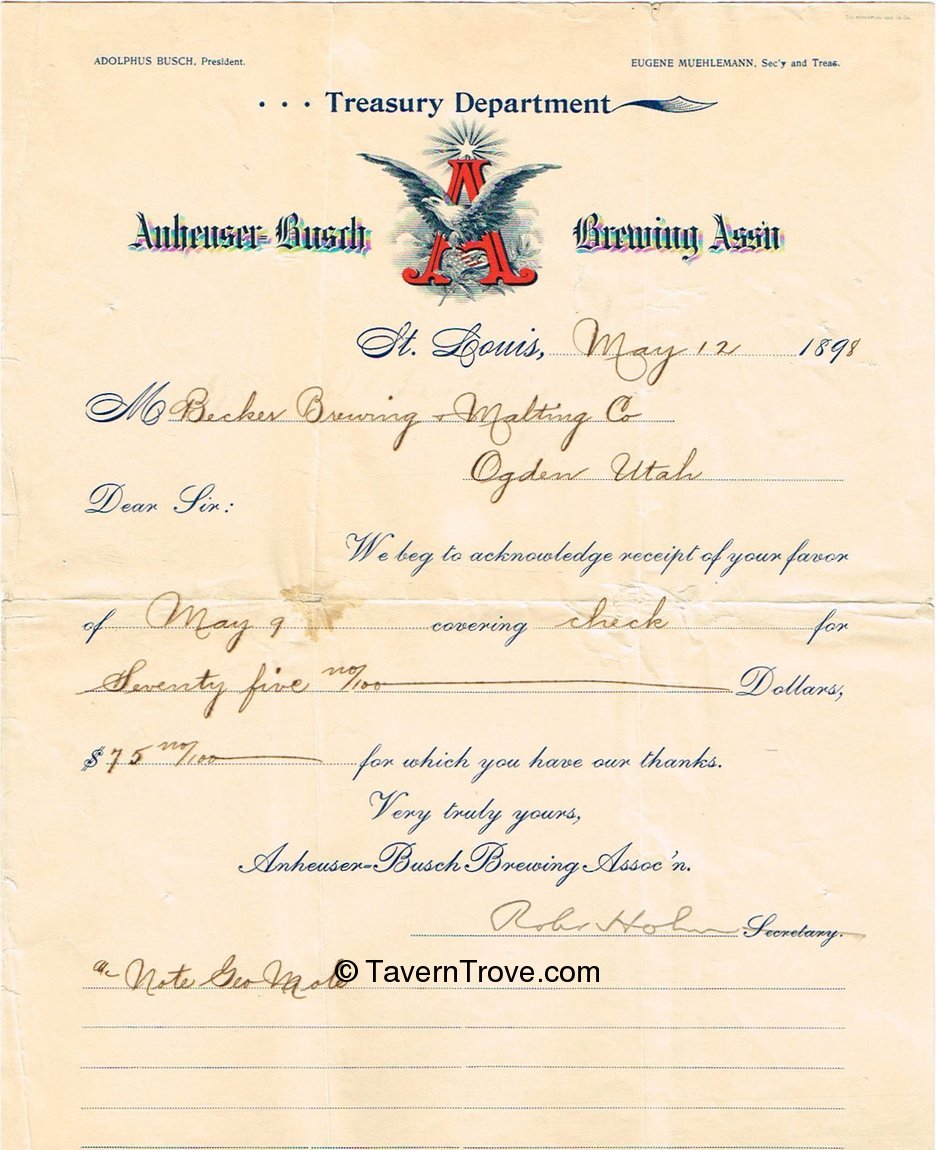 ADOLPHUS BUSCH, President.
EUGENE MUEHLEMANN, Sec'y and Treas.
Treasury Department
A
Anheuser-Busch Brewing Ass'n
St. Louis, May 12 1898
M Becker Brewing & Malting Co
Ogden Utah
Dear Sir:
We beg to acknowledge receipt of your favor
of May 9 covering check for
Seventy five no/100 Dollars,
$75 no/100 for which you have our thanks.
Very truly yours,
Anheuser-Busch Brewing Assoc'n.
Secretary.
a/c Note Geo
© TavernTrove.com